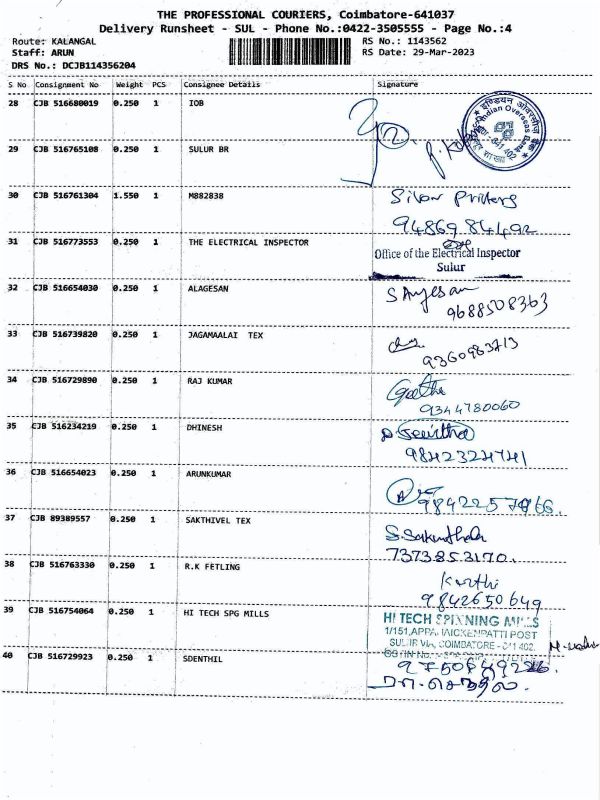 THE PROFESSIONAL COURIERS, Coimbatore-641037
Delivery Runsheet - SUL - Phone No.:0422-3505555 - Page No.:4
Route: KALANGAL RS No.: 1143562
Staff: ARUN RS Date: 29-Mar-2023
DRS No.: DCJB114356204
S No Consignment No Weight PCS Consignee Details Signature
28 CJB 516680019 0.250 1 IOB
2
Indian Overseas Bank
641 402
29 CJB 516765108 0.250 1 SULUR BR
30 CJB 516761304 1.550 1 M882838 Silver Printers
94869 84492
31 CJB 516773553 0.250 1 THE ELECTRICAL INSPECTOR
Office of the Electrical Inspector
Sulur
32 CJB 516654030 0.250 1 ALAGESAN
9688508363
33 CJB 516739820 0.250 1 JAGAMAALAI TEX
9360983713
34 CJB 516729890 0.250 1 RAJ KUMAR Geetha
9344780060
35 CJB 516234219 0.250 1 DHINESH
9842324741
36 CJB 516654023 0.250 1 ARUNKUMAR
37 CJB 89389557 0.250 1 SAKTHIVEL TEX S.Sakunthala
7373853170.
38 CJB 516763330 0.250 1 R.K FETLING Karthi
9842650649
39 CJB 516754064 0.250 1 HI TECH SPG MILLS HI TECH SPINNING MILLS
1/151, APPANAICKENPATTI POST
SULUR Via, COIMBATORE - 641 402.
40 CJB 516729923 0.250 1 SDENTHIL